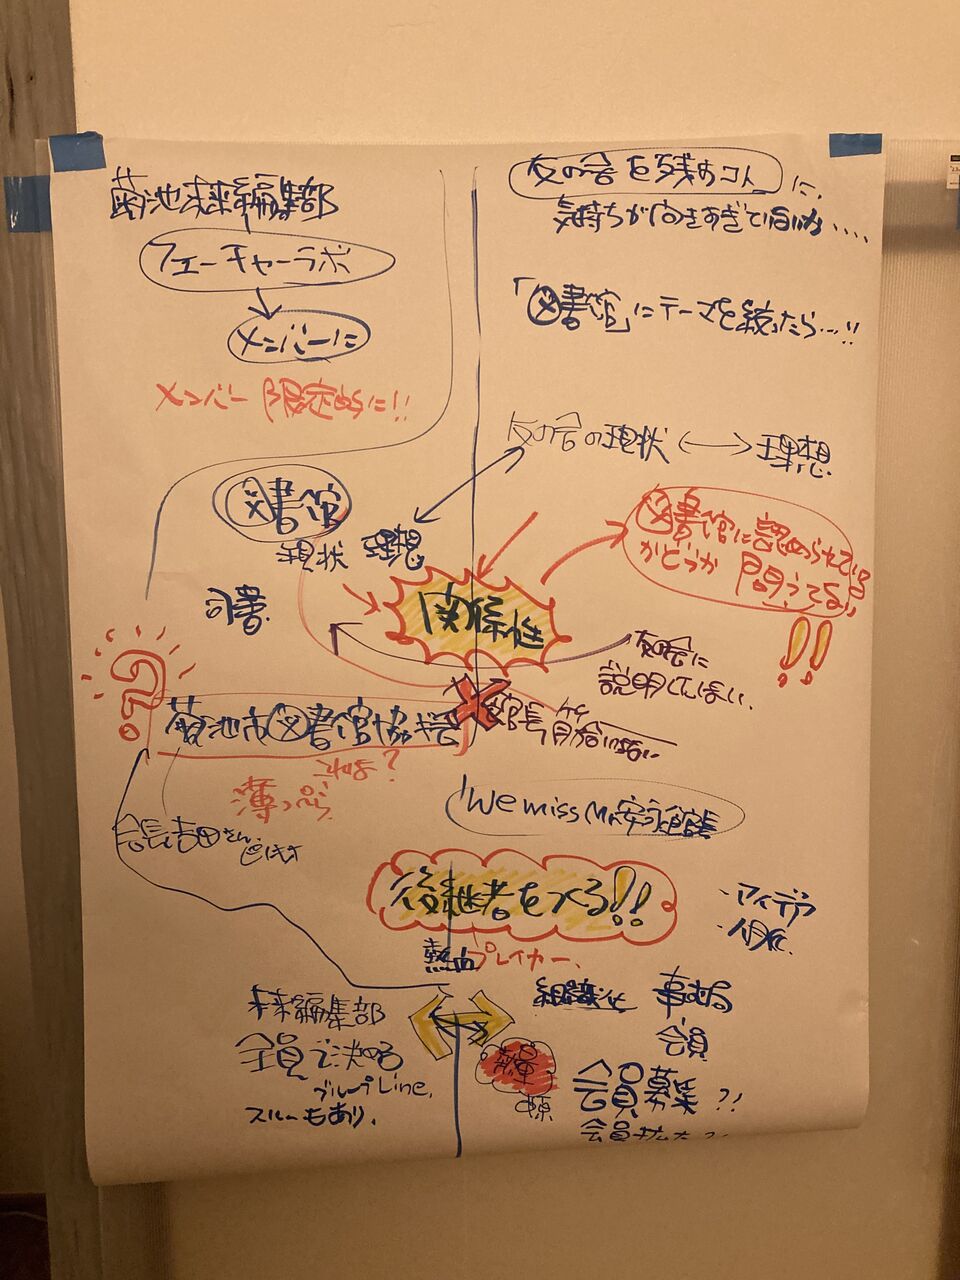 菊池未来編集部
フューチャーラボ
メンバーに
メンバー限定的に!!
友の会を残すコトに、
気持ちが向きすぎているいか....
「図書館」にテーマを絞ったら...!!
友の会の現状 ←→ 理想
図書館
現状 理想
司書
関係性
図書館に認められている
かどうか 問うてる
!!
友の会に
説明してほしい。
?
菊池市図書館協ギ会
×
館長
これは?
薄っぺら
会長吉田さん
We miss Mr.安永館長
後継者をつくる!!
熱血プレイカー、
・アイデア
未来編集部
全員で決める
グループLine,
スルーもあり、
事務局
会員
会員募集 ?!
会員拡大?